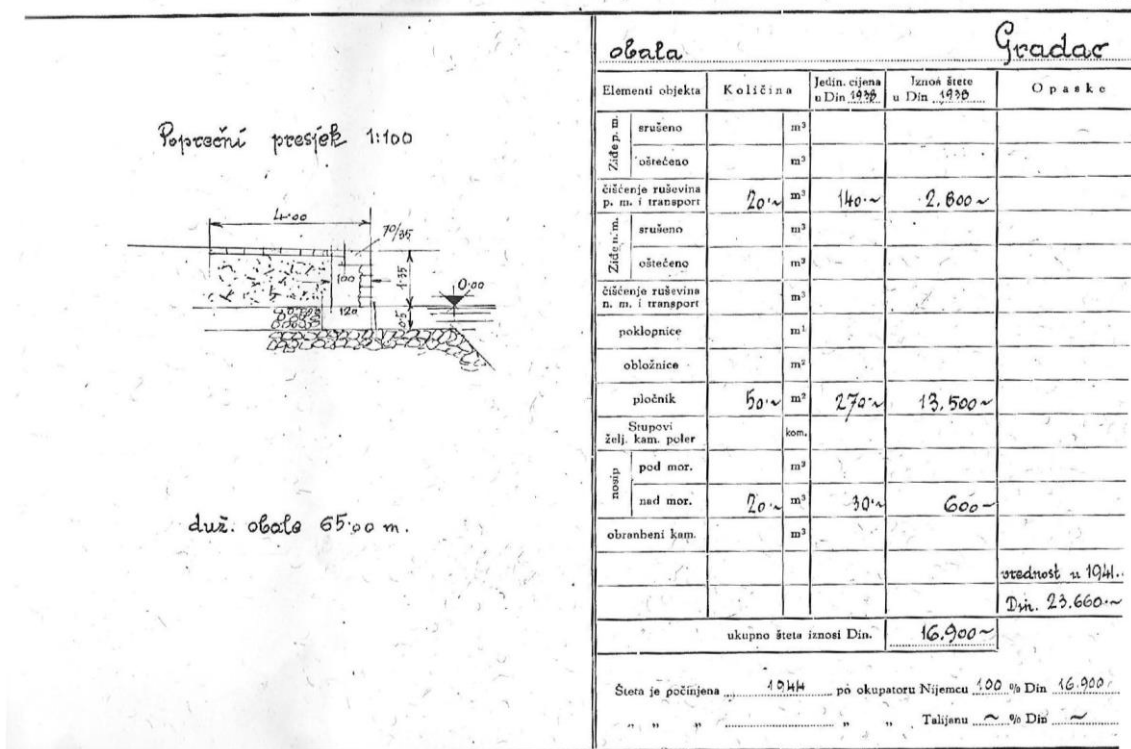 Poprečni presjek 1:100
4.00
70/35
100
1.35
0.00
120
0.5
duž. obale 65.00 m.
obala Gradac
Elementi objekta Količina Jedin. cijena u Din 1938 Iznos štete u Din 1938 Opaske
Ziđe p. m. srušeno m³
oštećeno m³
čišćenje ruševina p. m. i transport 20.~ m³ 140.~ 2.800~
Ziđe n. m. srušeno m³
oštećeno m³
čišćenje ruševina n. m. i transport m³
poklopnice m¹
obložnice m²
pločnik 50.~ m² 270.~ 13.500~
Stupovi želj. kam. poler kom.
nasip pod mor. m³
nad mor. 20.~ m³ 30.~ 600~
obranbeni kam. m³
vrednost u 1941.
Din. 23.660.~
ukupno šteta iznosi Din. 16.900~
Šteta je počinjena 1944 po okupatoru Nijemcu 100 % Din 16.900.
„ „ „ „ „ Talijanu ~ % Din ~